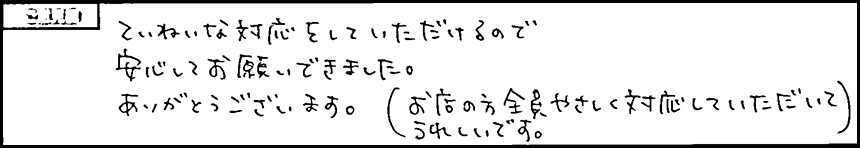 ていねいな対応をしていただけるので
安心してお願いできました。
ありがとうございます。(お店の方全員やさしく対応していただいて
うれしいです。)